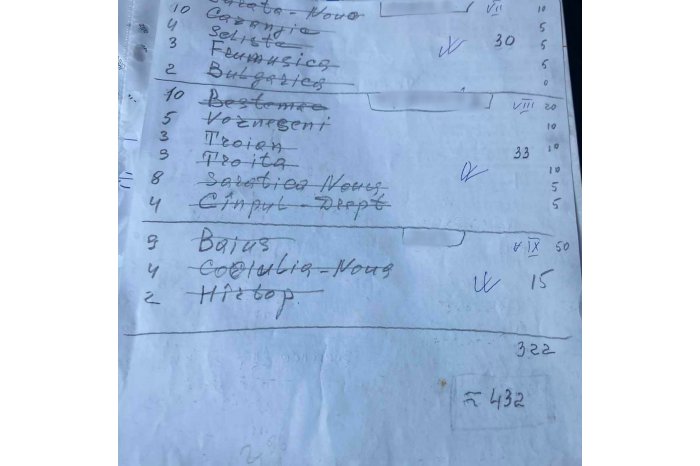 Sarata - Noua VII 10
10 Cazangic 5
4 Seliste 30 5
3 Frumusica 5
2 Bulgarica 0
10 Bestemac VIII 20
5 Vozneseni 10
3 Troian 33 10
3 Troita 10
8 Saratica Noua 5
4 Cînpul - Drept 5
9 Baius IX 50
4 Cociulia - Noua 15
2 Hîrtop
322
≈ 432